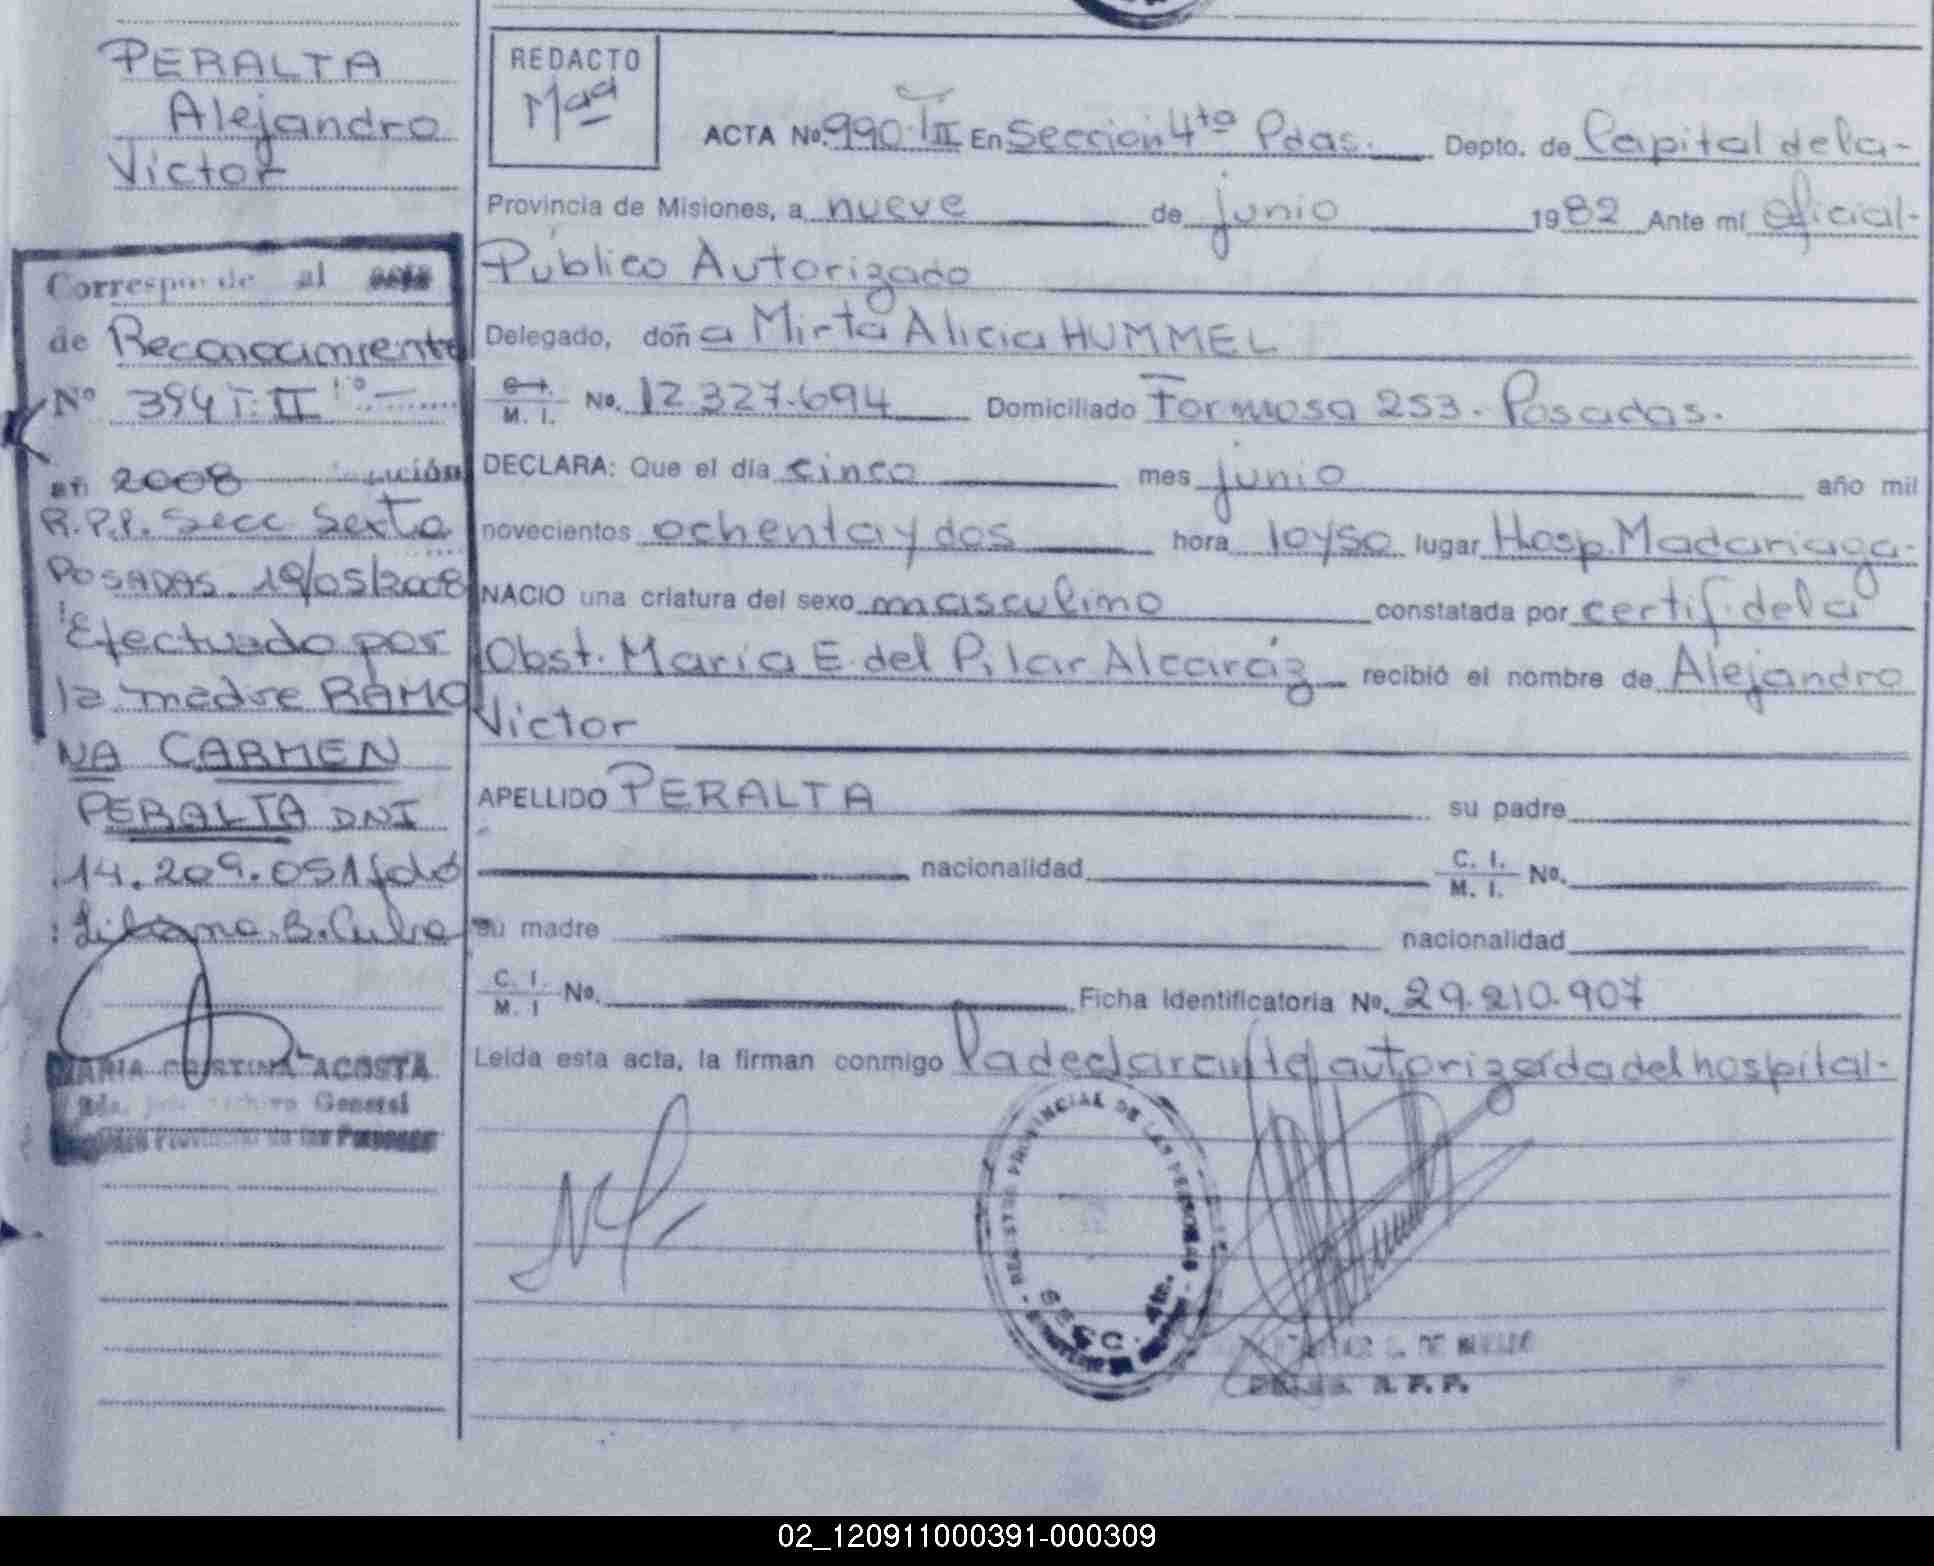 PERALTA
Alejandro
Victor
Corresponde al
de Reconocimiento
Nº 394 T: II 1º
en 2008
R.P.P. Secc Sexta
POSADAS. 19/05/2008
Efectuado por
la madre RAMO
NA CARMEN
PERALTA DNI
14.209.051 fdo
MARIA CRISTINA ACOSTA
General
Provincial de las Personas
REDACTO
Maa
ACTA No. 990-TII En Sección 4ta Pdas. Depto. de Capital de la-
Provincia de Misiones, a nueve de junio 1982 Ante mí Oficial-
Público Autorizado
Delegado, doña Mirta Alicia HUMMEL
C. I. M. I. No. 12.327.694 Domiciliado Formosa 253. Posadas.
DECLARA: Que el día cinco mes junio año mil
novecientos ochenta y dos hora 10y50 lugar Hosp. Madariaga-
NACIO una criatura del sexo masculino constatada por certif. de la
Obst. María E. del Pilar Alcaráz recibió el nombre de Alejandro
Victor
APELLIDO PERALTA su padre
nacionalidad C. I. M. I. No.
su madre nacionalidad
C. I. M. I No. Ficha Identificatoria No. 29.210.907
Leída esta acta, la firman conmigo la declarante autorizada del hospital-
REGISTRO PROVINCIAL DE LAS PERSONAS
SECC. 4ta.
R. P. P.
02_120911000391-000309